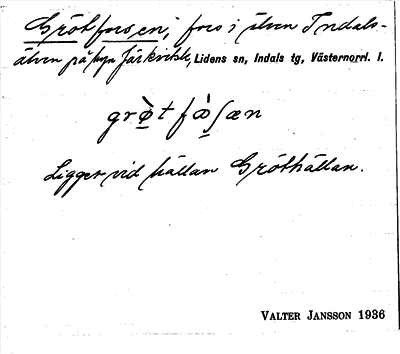 Grötforsen, fors i älven Indals-
älven på byn Järkvitsle, Lidens sn, Indals tg, Västernorrl. l.
grø̀t fòʃæn
Ligger vid hällan Gröthällan.
VALTER JANSSON 1936